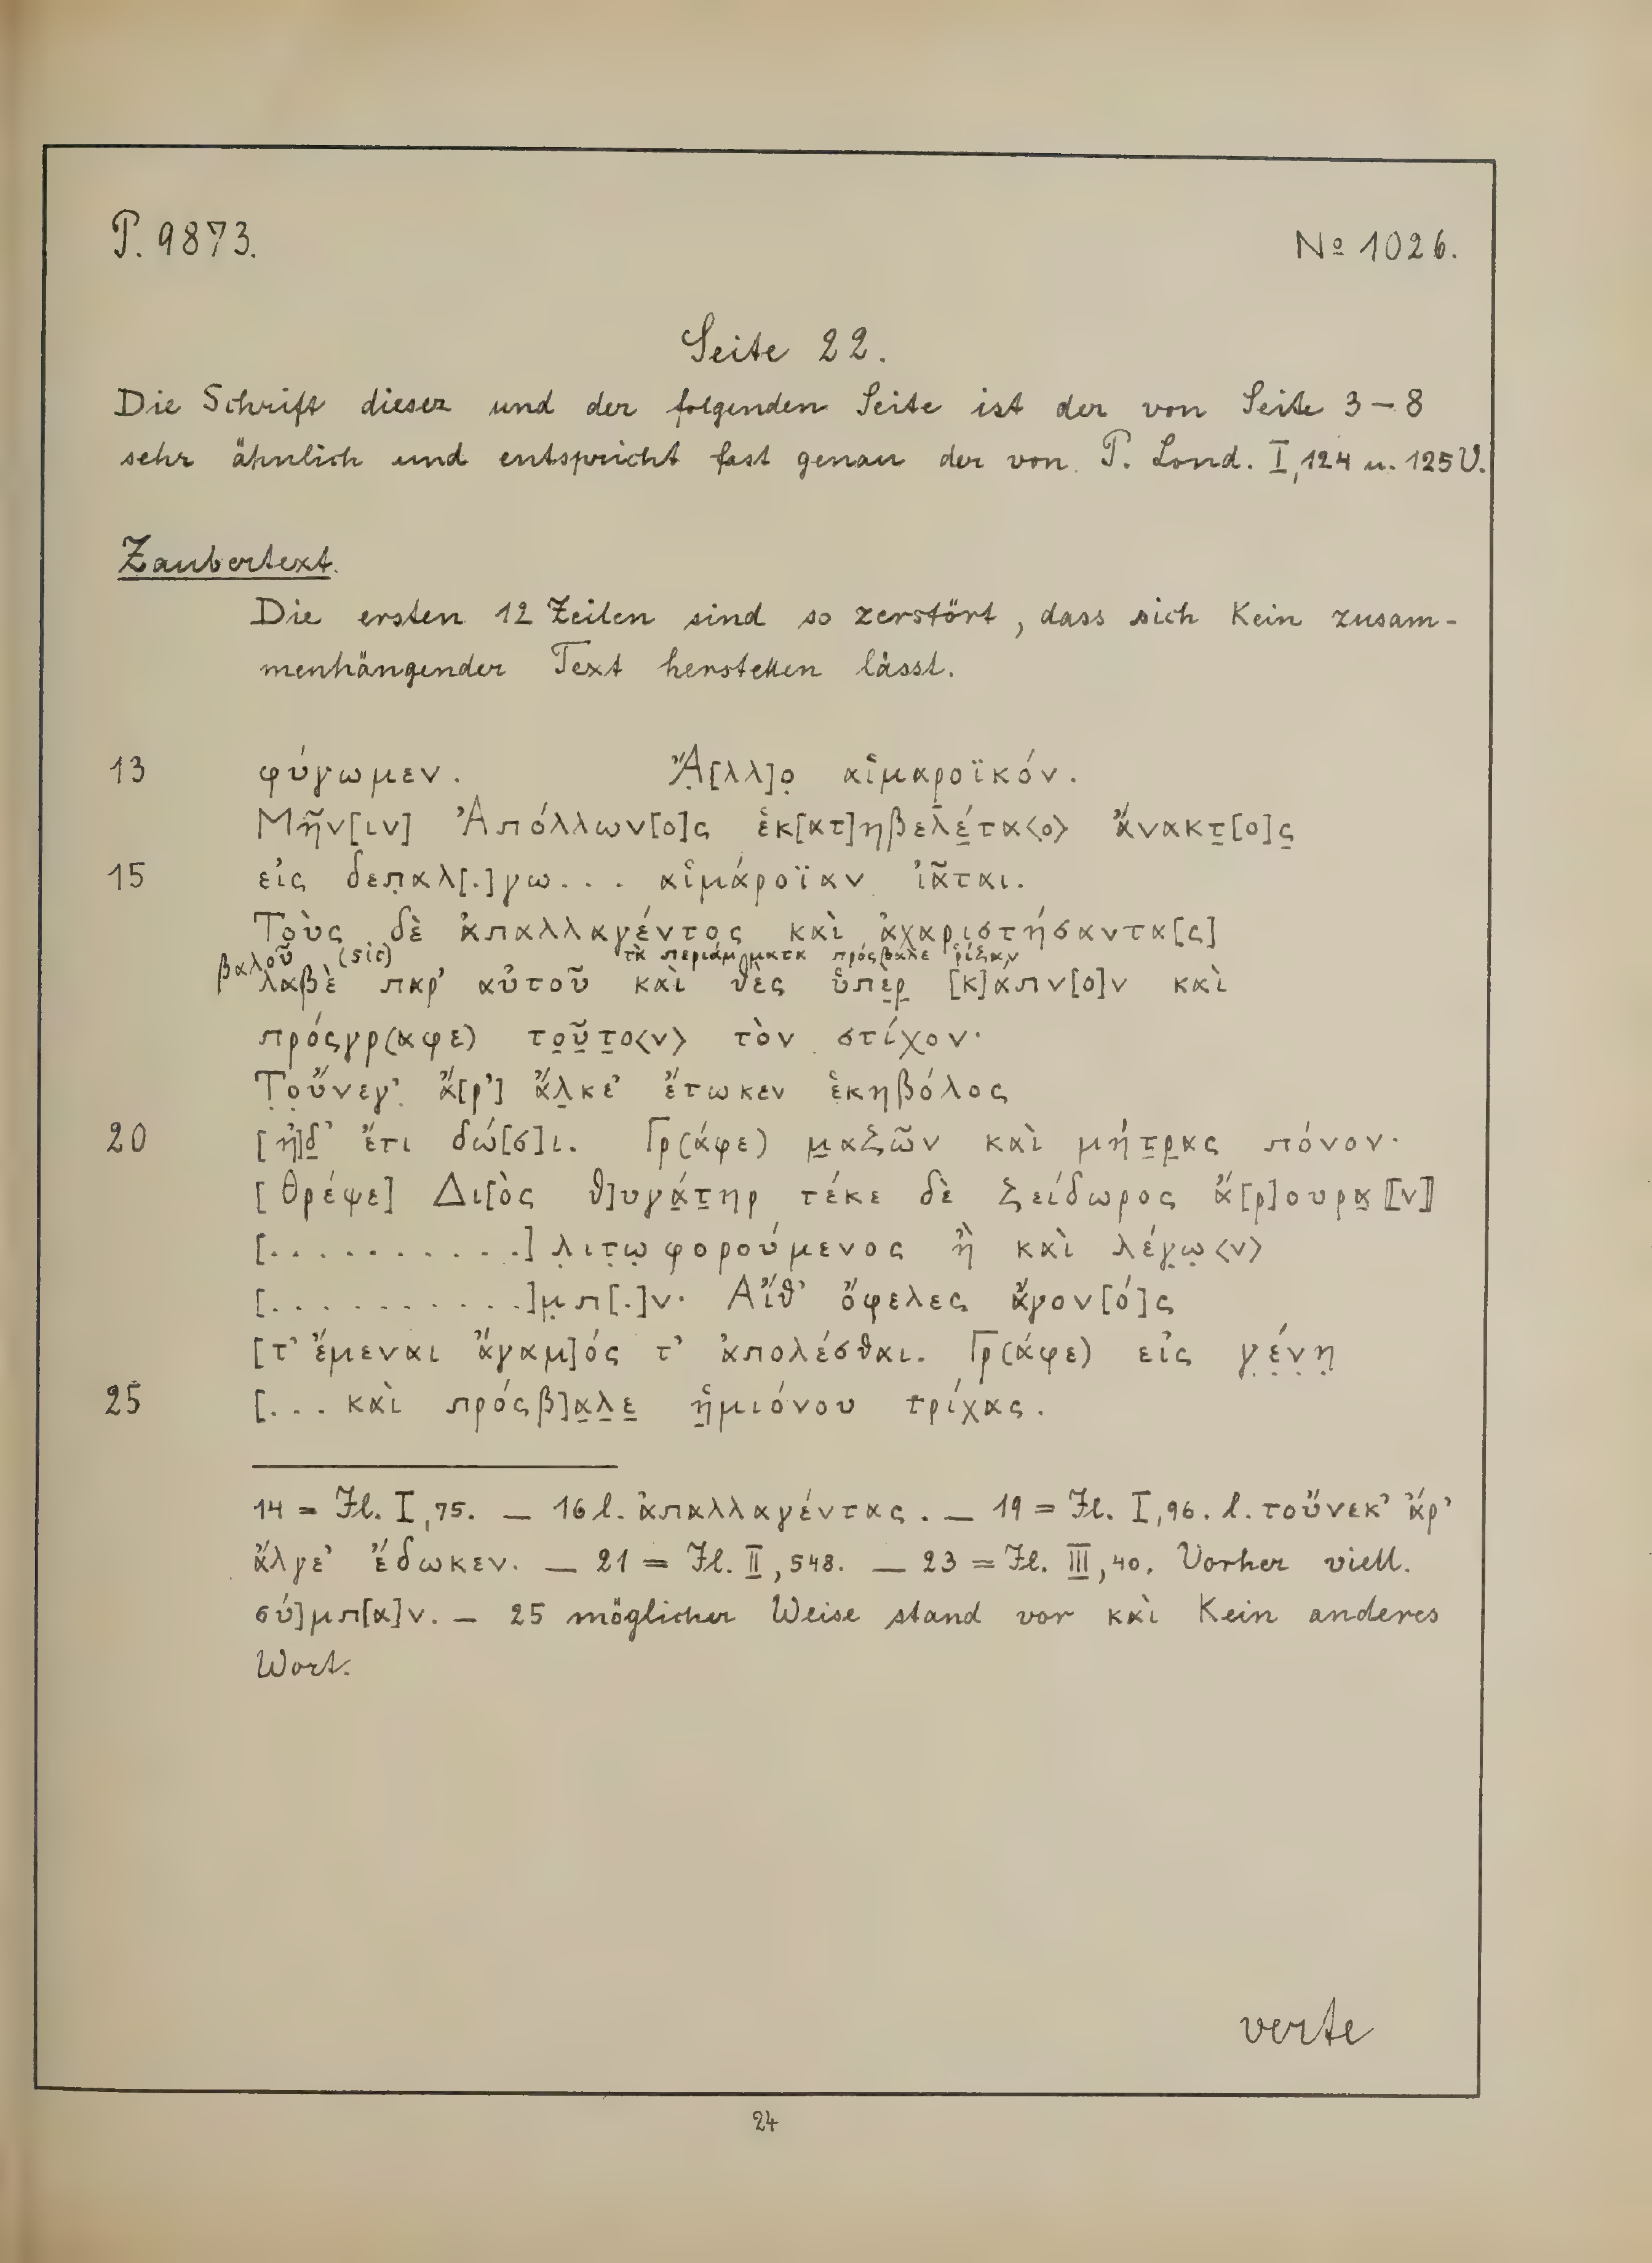 P. 9873.
No 1026.
Seite 22.
Die Schrift dieser und der folgenden Seite ist der von Seite 3–8
sehr ähnlich und entspricht fast genau der von P. Lond. I, 124 u. 125 V.
Zaubertext.
Die ersten 12 Zeilen sind so zerstört, dass sich kein zusam-
menhängender Text herstellen lässt.
13 φύγωμεν. Ἄ̣[λλ]ο̣ αἱμαροϊκόν.
Μῆν[ιν] Ἀπόλλων[ο]ς ἑκ[ατ]ηβελέ̲τα<ο> ἄνακτ̲[ο]ς̲
15 εἰς δεπ̣αλ[.]γω... αἱμάροϊαν ἰᾶται.
Τοὺς δὲ ἀπαλλαγέντος καὶ ἀχαριστήσαντα[ς]
βαλοῦ (sic) τὰ περιάμματα πρόσβαλε ῥίζαν
λαβὲ παρ' αὐτοῦ καὶ θὲς ὑπὲ̲ρ̲ [κ]απν[ο]ν καὶ
πρόςγρ(αφε) το̲ῦ̲τ̲ο<ν> τὸν στίχον·
Τ̣ο̣ὔνεγ' ἄ[ρ'] ἄλ̲κε' ἔτωκεν ἑκηβόλος
20 [ἠ]δ̲' ἔτι δώ[σ]ι. Γρ(άφε) μ̲αζῶν καὶ μήτ̲ρ̲ας πόνον·
[θρέψε] Δι[ὸς θ]υγά̲τ̲ηρ τέκε δὲ ζείδωρος ἄ[ρ]ουρα̲⟦ν⟧
[...........] λ̣ιτ̣ῳ̣ φορούμενος ἢ καὶ λέγ̣ω̣<ν>
[...........]μ̣π[.]ν· Αἴθ' ὄφελες ἄγον[ό]ς
[τ' ἔμεναι ἄγαμ]ός τ' ἀπολέσθαι. Γρ(άφε) εἰς γ̣έ̣ν̣η̣
25 [... καὶ πρόςβ]α̲λ̲ε̲ ἡ̲μιόνου τρίχας.
14 = Il. I, 75. — 16 l. ἀπαλλαγέντας. — 19 = Il. I, 96. l. τοὔνεκ' ἄρ'
ἄλγε' ἔδωκεν. — 21 = Il. II, 548. — 23 = Il. III, 40. Vorher viell.
σύ]μπ[α]ν. — 25 möglicher Weise stand vor καὶ kein anderes
Wort.
verte
24